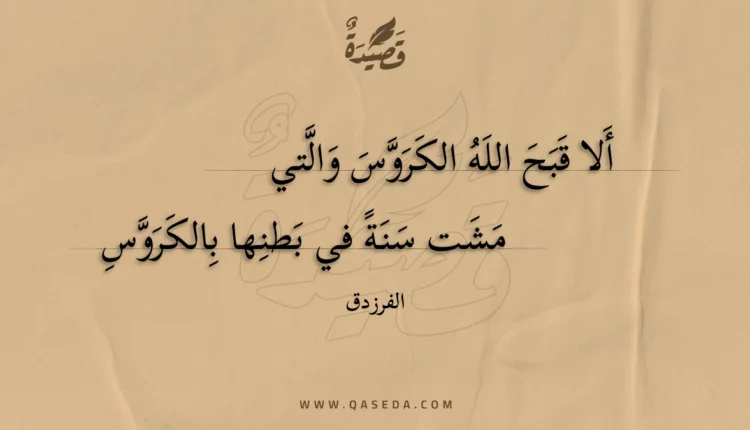 قَصِيدَةٌ
أَلا قَبَحَ اللَهُ الكَرَوَّسَ وَالَّتي
مَشَت سَنَةً في بَطنِها بِالكَرَوَّسِ
الفرزدق
WWW.QASEDA.COM